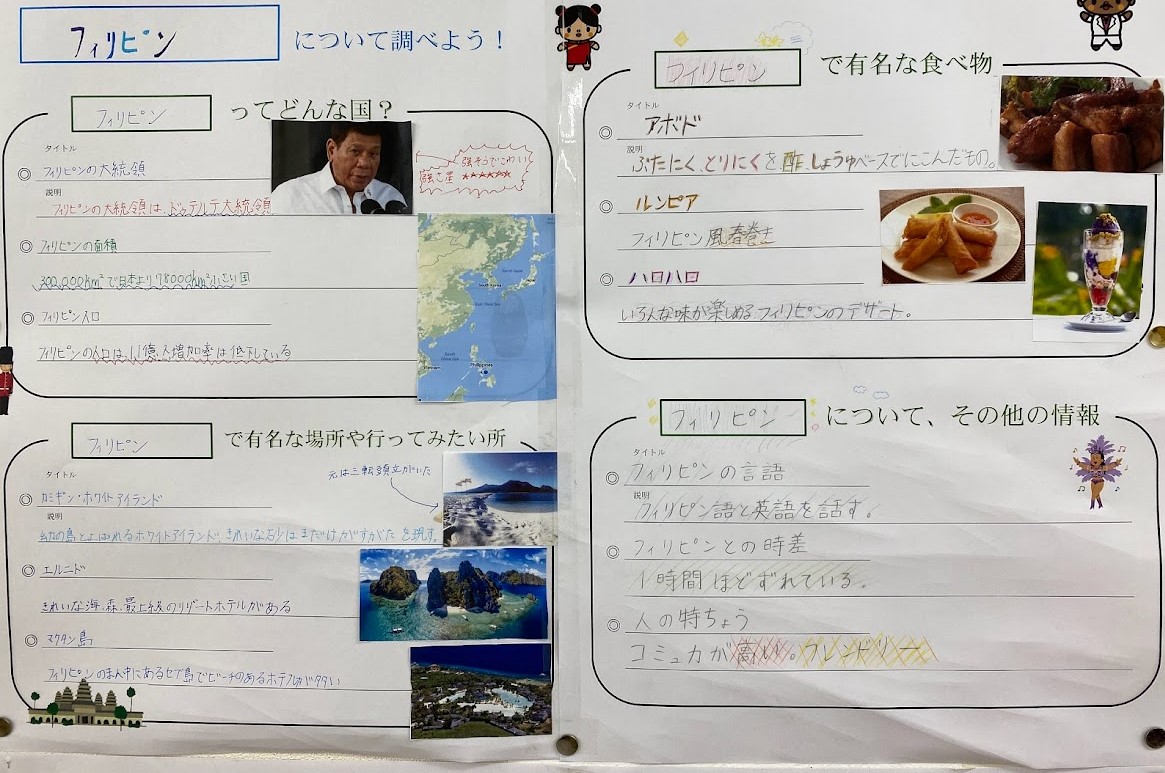 フィリピン について調べよう！
フィリピン ってどんな国？
タイトル
◎ フィリピンの大統領
説明
フィリピンの大統領は、ドゥテルテ大統領
強そうでこわい
強さ星 ★★★★★★
◎ フィリピンの面積
300,000km²で日本より78000km²小さい国
◎ フィリピン人口
フィリピンの人口は、1.1億人増加率は低下している
South Korea
East China Sea
South China Sea
Vietnam
Philippines
フィリピン で有名な場所や行ってみたい所
タイトル
◎ カミギン・ホワイトアイランド
元は三転頭立がいた
説明
幻の島とよばれるホワイトアイランド、きれいな石少はまだけがすがた を現す。
◎ エルニド
きれいな海、森、最上級のリゾートホテルがある
◎ マクタン島
フィリピンのまん中にあるセブ島でビーチのあるホテルが多い
フィリピン で有名な食べ物
タイトル
◎ アボド
説明
ぶたにく、とりにくを酢、しょうゆベースでにこんだもの。
◎ ルンピア
フィリピン風春巻き
◎ ハロハロ
いろんな味が楽しめるフィリピンのデザート。
フィリピン について、その他の情報
タイトル
◎ フィリピンの言語
説明
フィリピン語と英語を話す。
◎ フィリピンとの時差
1時間ほどずれている。
◎ 人の特ちょう
コミュカが高い。フレンドリー